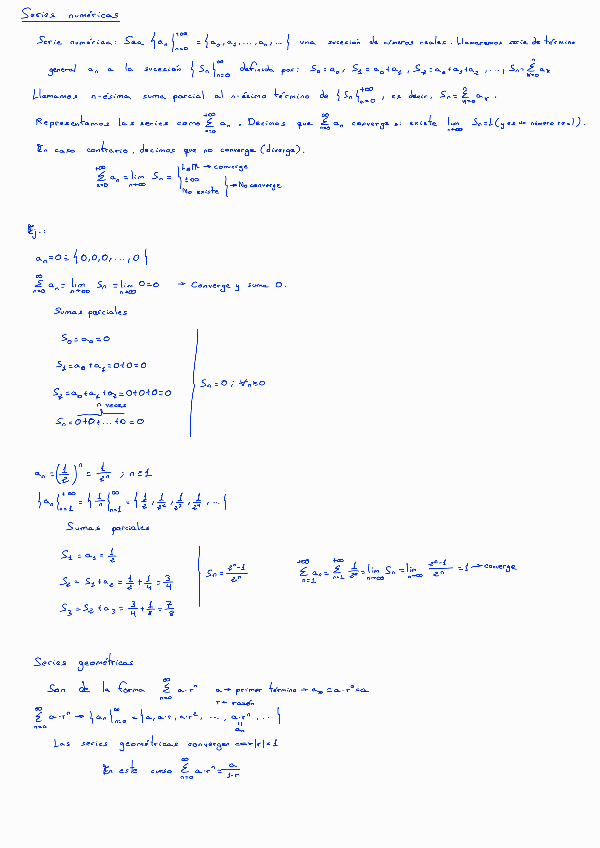 Series numéricas
Serie numérica: Sea {aₙ}ₙ₌₀^+∞ = {a₀, a₁, ..., aₙ, ...} una sucesión de números reales. Llamaremos serie de término
general aₙ a la sucesión {Sₙ}ₙ₌₀^∞ definida por: S₀=a₀, S₁=a₀+a₁, S₂=a₀+a₁+a₂, ..., Sₙ=∑ₖ₌₀^n aₖ
Llamamos n-ésima suma parcial al n-ésimo término de {Sₙ}ₙ₌₀^+∞, es decir, Sₙ=∑ₖ₌₀^n aₖ.
Representamos las series como ∑ₙ₌₀^+∞ aₙ. Decimos que ∑ₙ₌₀^∞ aₙ converge si existe lim n→+∞ Sₙ=L (y es un número real).
En caso contrario, decimos que no converge (diverge).
∑ₙ₌₀^+∞ aₙ = lim n→+∞ Sₙ = { L∈ℝ → converge
±∞
No existe } → No converge
Ej.:
aₙ=0; {0,0,0,...,0}
∑ₙ₌₀^∞ aₙ = lim n→+∞ Sₙ = lim n→+∞ 0=0 → Converge y suma 0.
Sumas parciales
S₀=a₀=0
S₁=a₀+a₁=0+0=0
S₂=a₀+a₁+a₂=0+0+0=0
Sₙ=0; ∀n≥0
n veces
Sₙ=0+0+...+0=0
aₙ=(1/2)^n = 1/2^n ; n≥1
{aₙ}ₙ₌₁^+∞ = {1/n}ₙ₌₁^∞ = {1/2, 1/2², 1/2³, 1/2⁴, ...}
Sumas parciales
S₁=a₁=1/2
S₂=S₁+a₂=1/2+1/4=3/4
S₃=S₂+a₃=3/4+1/8=7/8
Sₙ=2^n-1/2^n
∑ₙ₌₁^+∞ aₙ=∑ₙ₌₁^+∞ 1/2^n=lim n→+∞ Sₙ=lim n→+∞ 2^n-1/2^n =1 → converge
Series geométricas
Son de la forma ∑ₙ₌₀^∞ a·r^n a → primer término → a₀=a·r⁰=a
r → razón
∑ₙ₌₀^∞ a·r^n → {aₙ}ₙ₌₀^+∞ = {a, a·r, a·r², ..., a·r^n, ...}
=
aₙ
Las series geométricas convergen ⟺ |r|<1
En este curso ∑ₙ₌₀^∞ a·r^n = a/1-r